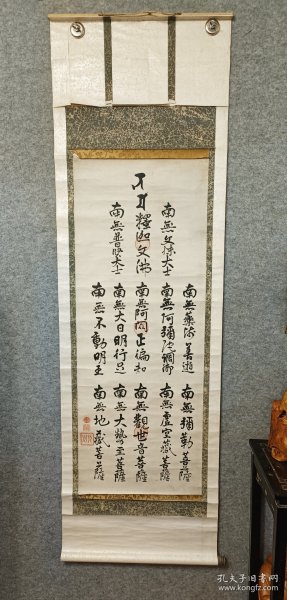 南無文殊大士
釋迦文佛
南無普賢大士
南無藥師善逝
南無阿彌陀調御
南無阿閦正徧知
南無大日明行足
南無不動明王
南無彌勒菩薩
南無虛空藏菩薩
南無觀世音菩薩
南無大勢至菩薩
南無地藏菩薩
孔夫子旧书网